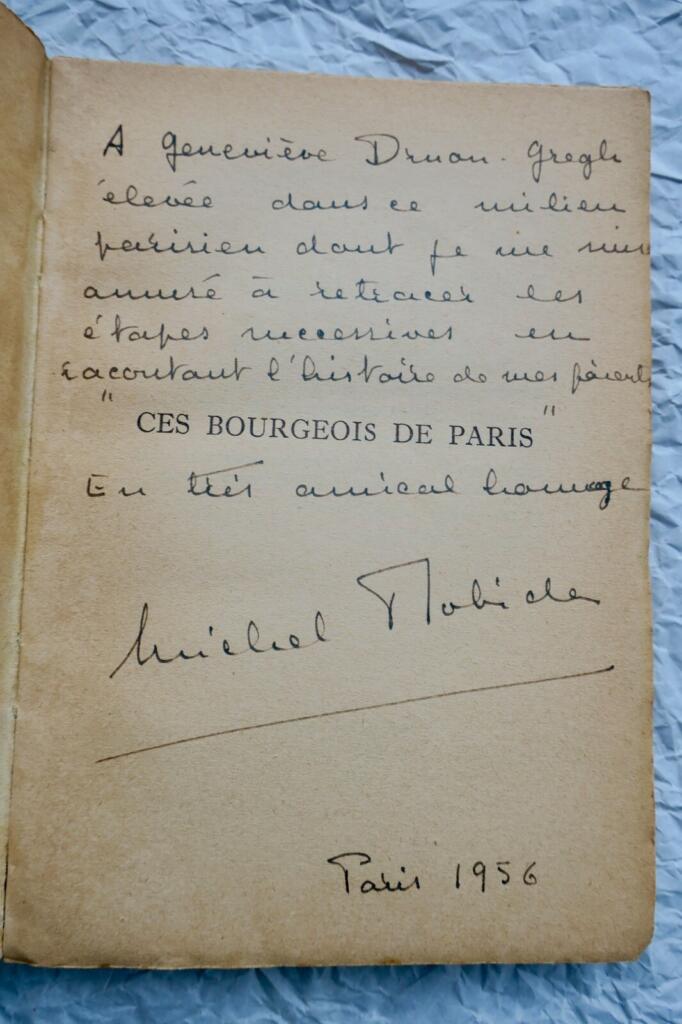 A Geneviève Druon-Gregh
élevée dans ce milieu
parisien dont je me suis
amusé à retracer les
étapes successives en
racontant l'histoire de mes parents
"CES BOURGEOIS DE PARIS"
En très amical homage
Michel Robida
Paris 1956